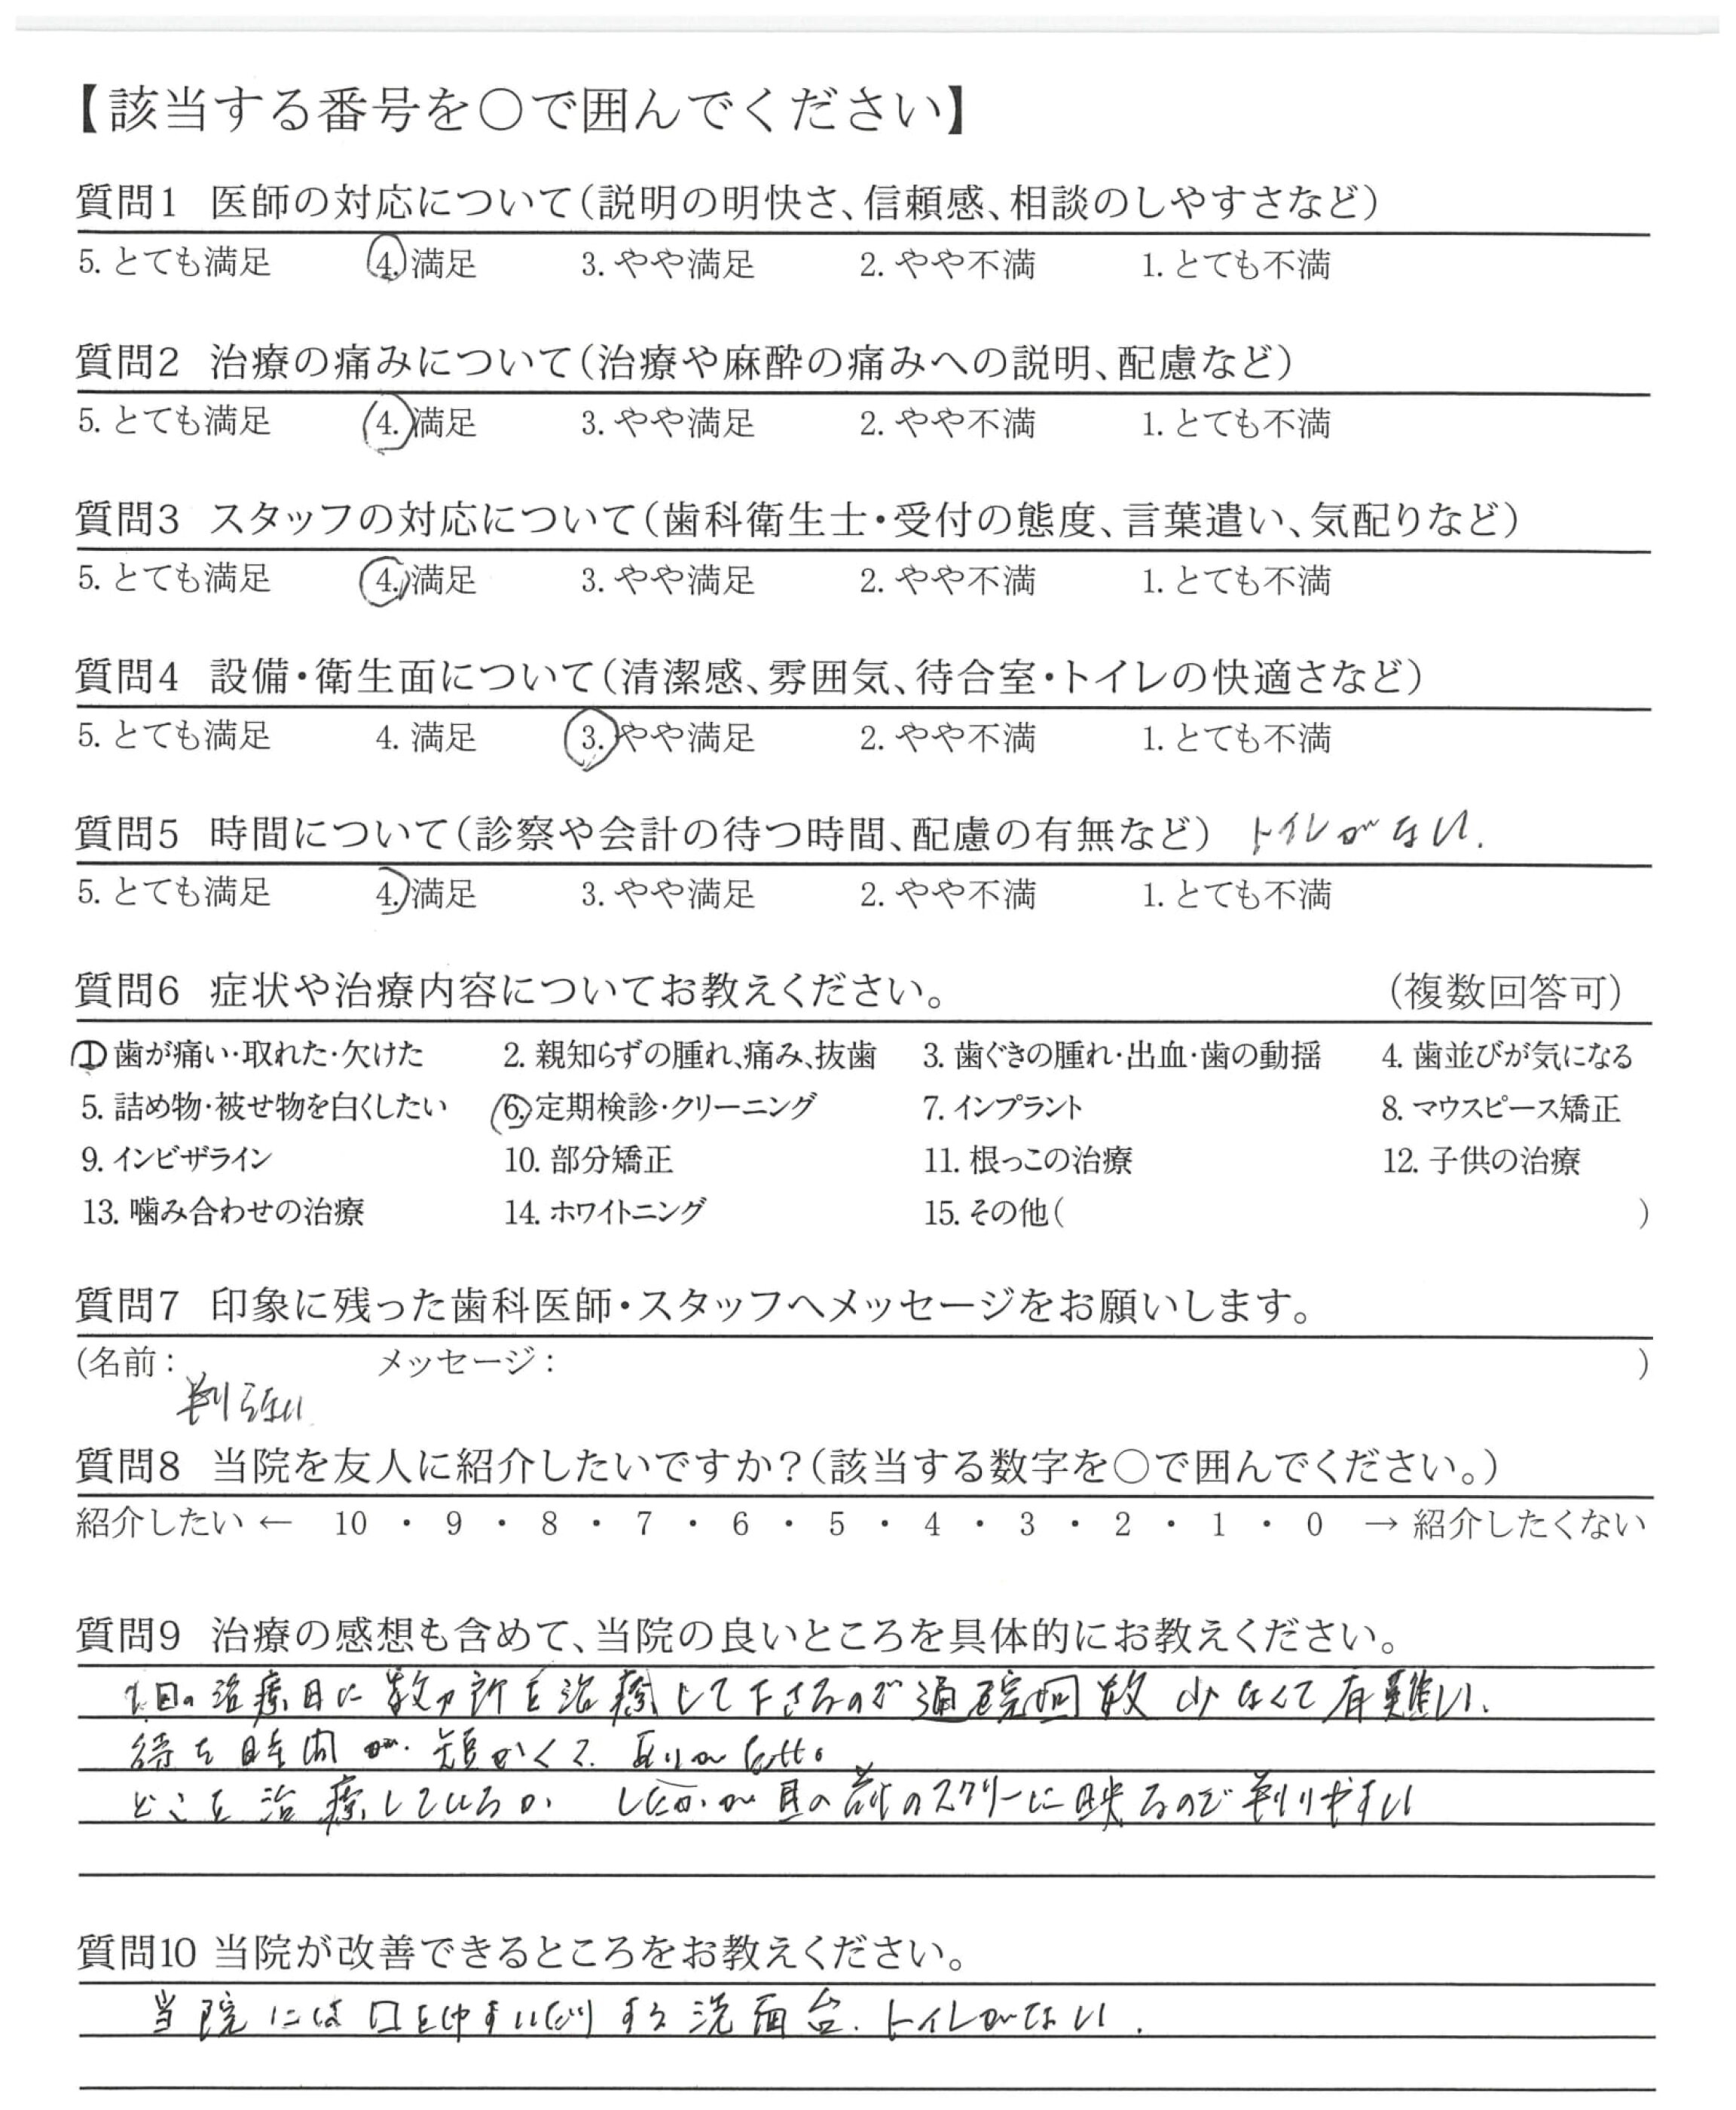 【該当する番号を○で囲んでください】
質問1 医師の対応について(説明の明快さ、信頼感、相談のしやすさなど)
5. とても満足 4. 満足 3. やや満足 2. やや不満 1. とても不満
質問2 治療の痛みについて(治療や麻酔の痛みへの説明、配慮など)
5. とても満足 4. 満足 3. やや満足 2. やや不満 1. とても不満
質問3 スタッフの対応について(歯科衛生士・受付の態度、言葉遣い、気配りなど)
5. とても満足 4. 満足 3. やや満足 2. やや不満 1. とても不満
質問4 設備・衛生面について(清潔感、雰囲気、待合室・トイレの快適さなど)
5. とても満足 4. 満足 3. やや満足 2. やや不満 1. とても不満
質問5 時間について(診察や会計の待つ時間、配慮の有無など) トイレがない.
5. とても満足 4. 満足 3. やや満足 2. やや不満 1. とても不満
質問6 症状や治療内容についてお教えください。 (複数回答可)
1 歯が痛い・取れた・欠けた 2. 親知らずの腫れ、痛み、抜歯 3. 歯ぐきの腫れ・出血・歯の動揺 4. 歯並びが気になる
5. 詰め物・被せ物を白くしたい 6. 定期検診・クリーニング 7. インプラント 8. マウスピース矯正
9. インビザライン 10. 部分矯正 11. 根っこの治療 12. 子供の治療
13. 噛み合わせの治療 14. ホワイトニング 15. その他( )
質問7 印象に残った歯科医師・スタッフへメッセージをお願いします。
(名前: メッセージ: )
判らない
質問8 当院を友人に紹介したいですか?(該当する数字を○で囲んでください。)
紹介したい ← 10 ・ 9 ・ 8 ・ 7 ・ 6 ・ 5 ・ 4 ・ 3 ・ 2 ・ 1 ・ 0 → 紹介したくない
質問9 治療の感想も含めて、当院の良いところを具体的にお教えください。
1回の治療日に数ヶ所を治療して下さるので通院回数少なくて有難い.
待ち時間が短かくて
どこを治療しているか 目の前のスクリーンに映るので判りやすい
質問10 当院が改善できるところをお教えください。
当院には口をゆすいだりする洗面台.トイレがない.